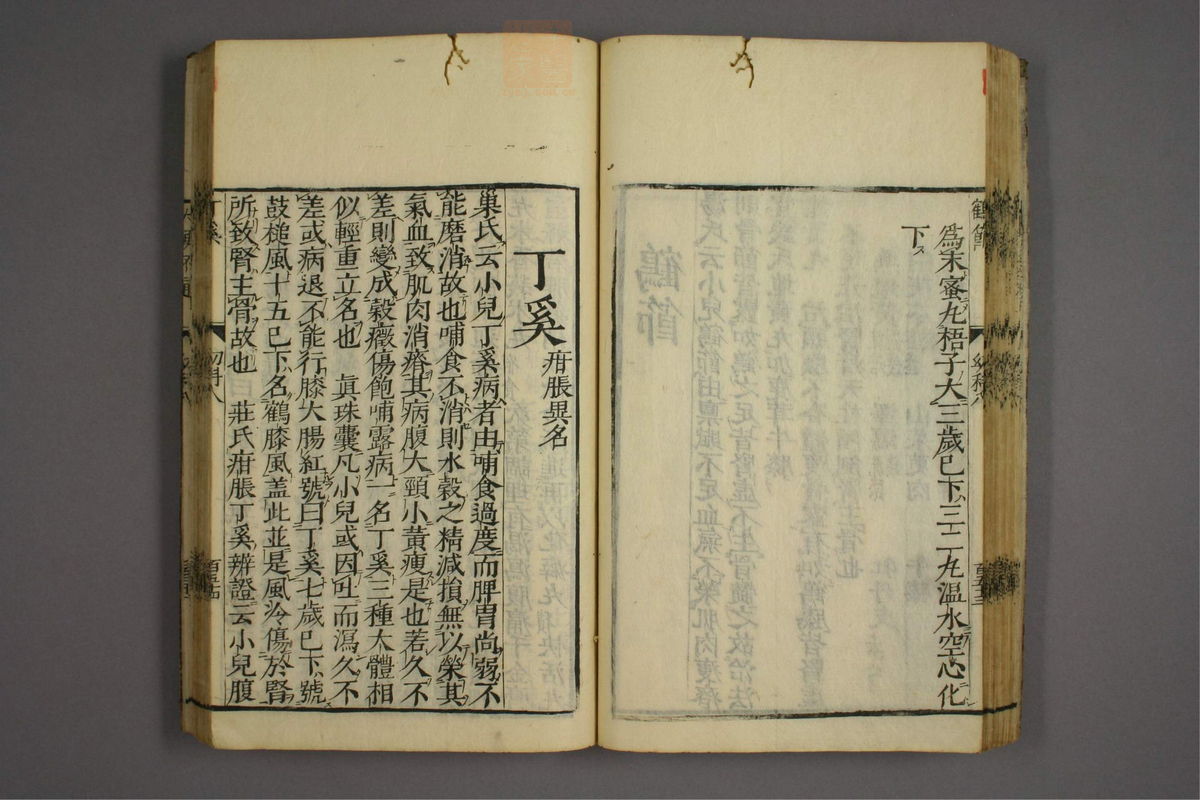 鶴節
為末蜜丸梧子大三歲已下三二丸温水空心化
下
丁奚
疳脹異名
巢氏云小兒丁奚病者由哺食過度而脾胃尚弱不
能磨消故也哺食不消則水穀之精減損無以榮其
氣血致肌肉消瘠其病腹大頸小黃瘦是也若久不
差則變成穀癥傷飽哺露病一名丁奚三種大體相
似輕重立名也　眞珠囊凡小兒或因吐而瀉久不
差或病退不能行膝大腸紅號曰丁奚七歲已下號
鼓槌風十五已下名鶴膝風盖此並是風冷傷於腎
所致腎主骨故也　莊氏疳脹丁奚辨證云小兒腹
丁奚